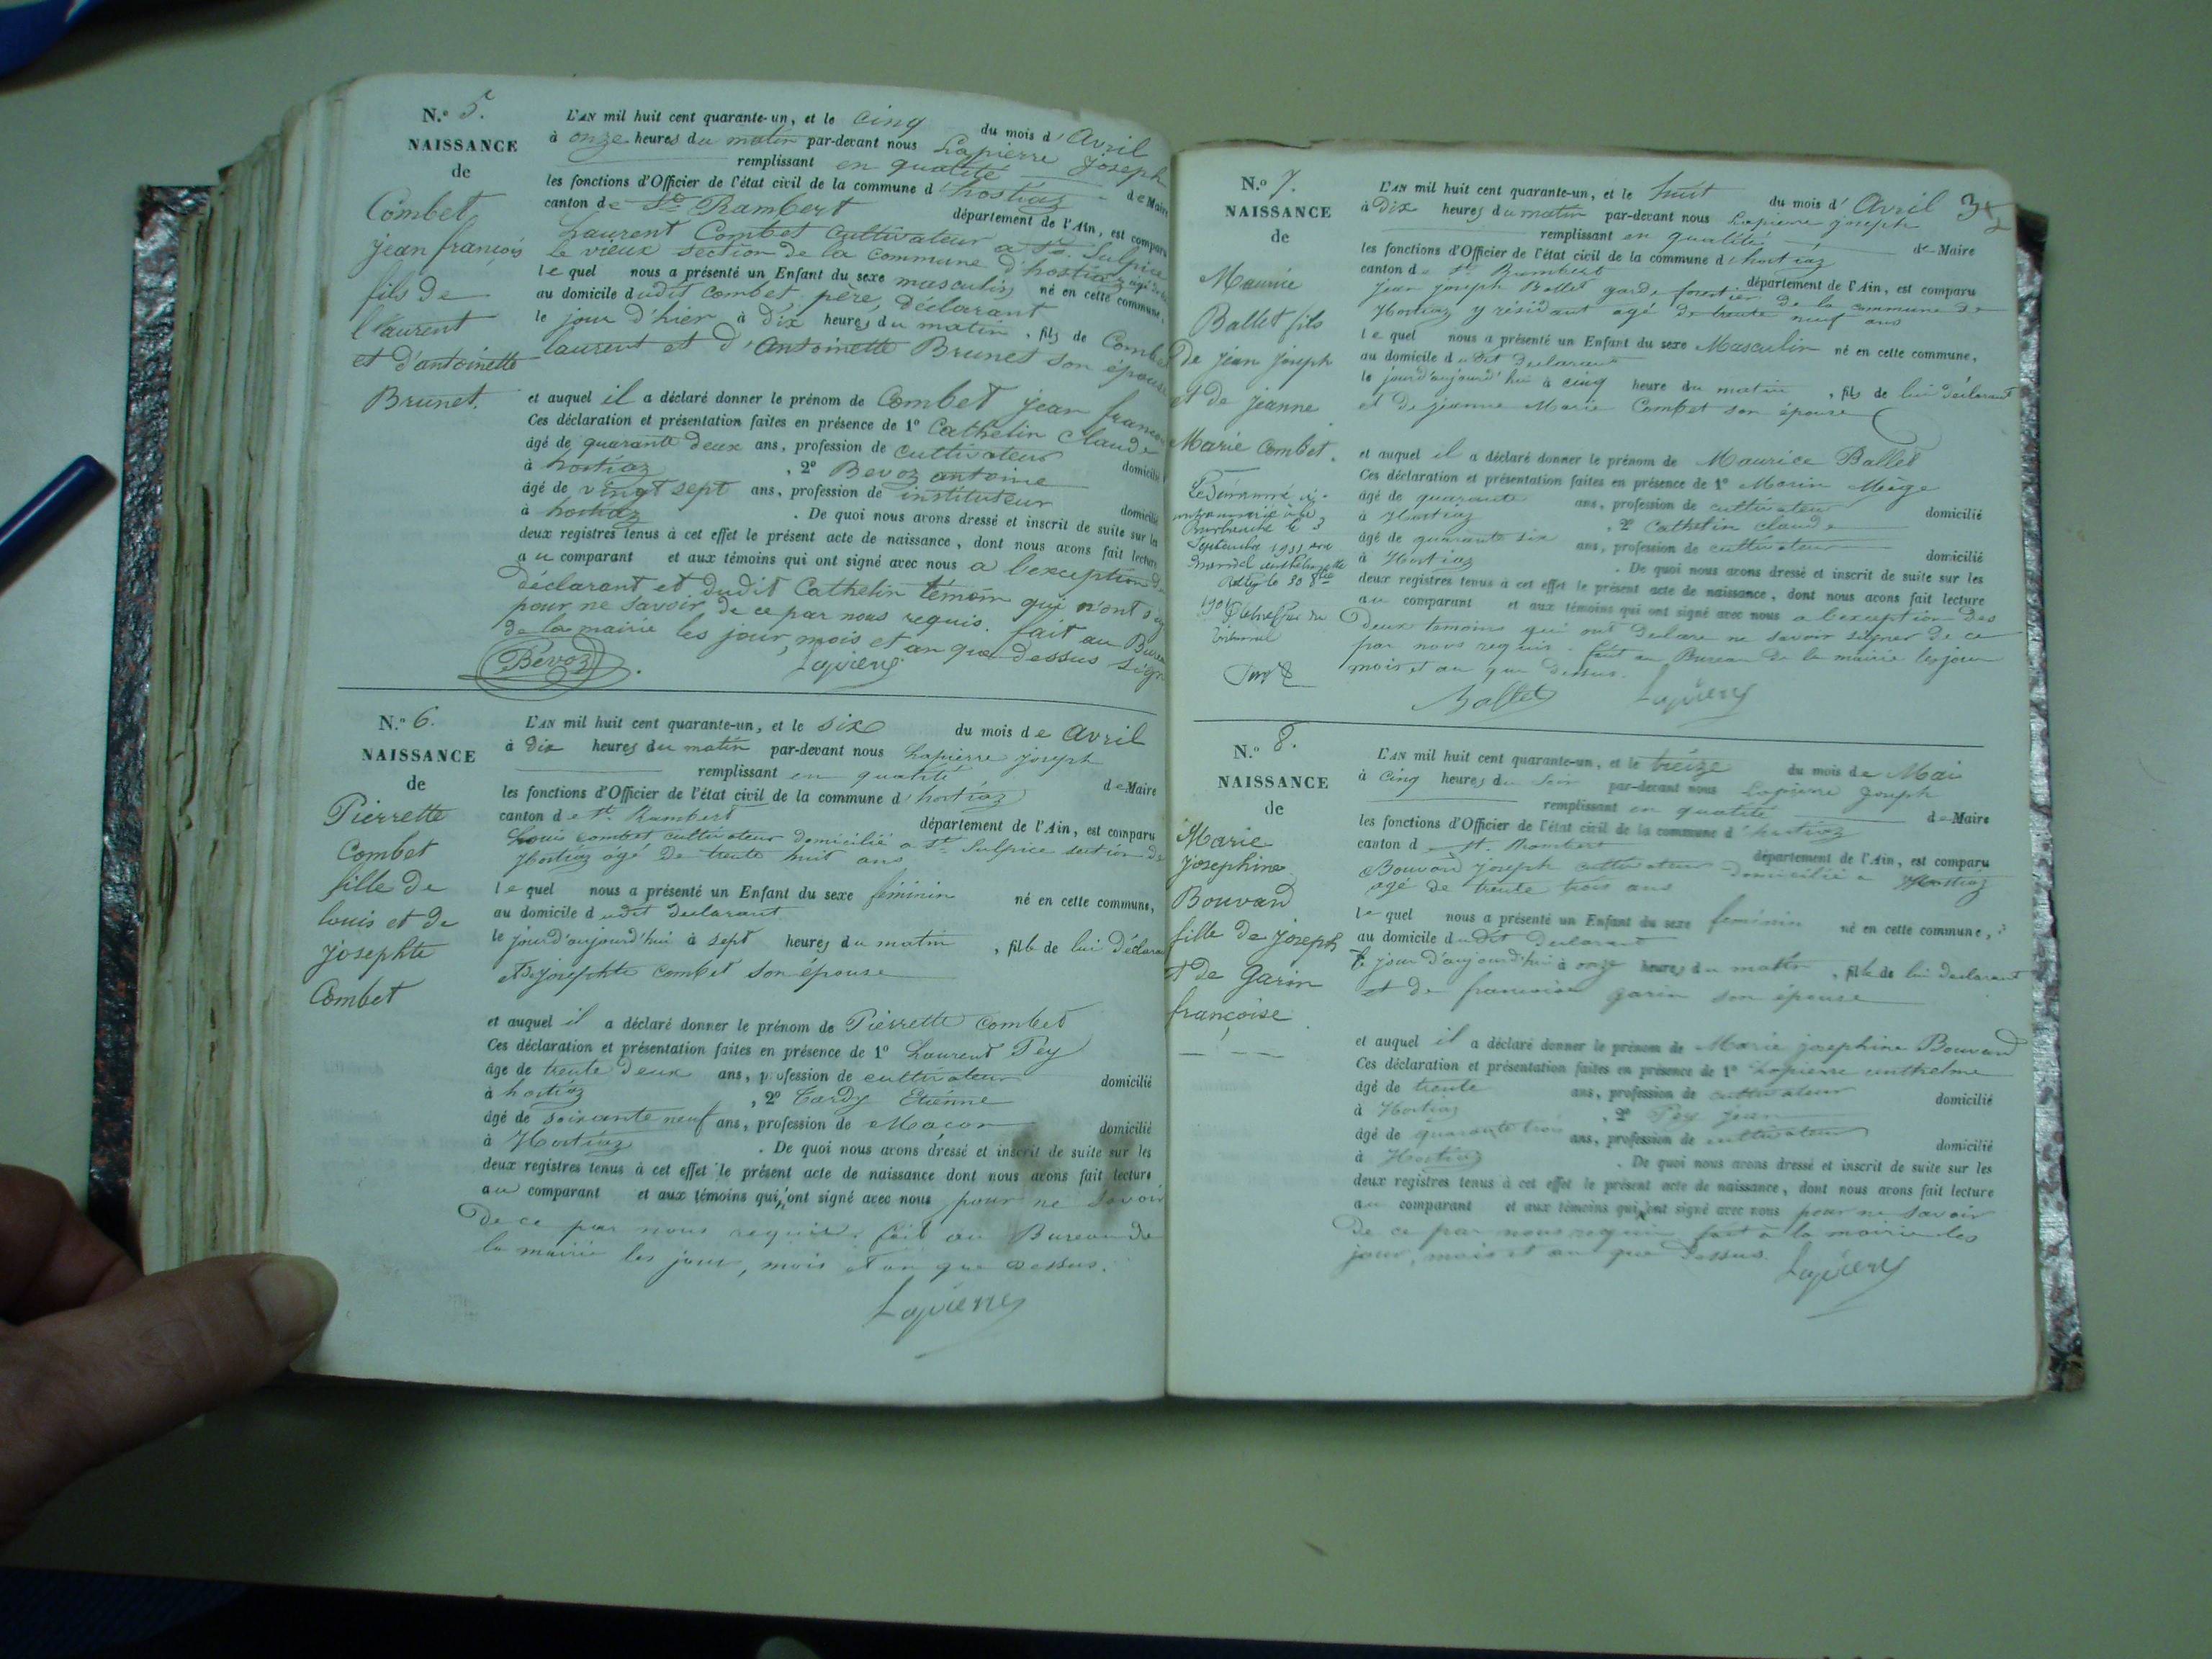 N.º 5.
NAISSANCE
de
Combet
jean françois
fils de
laurent
et d'antoinette
Brunet.
L'AN mil huit cent quarante-un, et le cinq du mois d'Avril
à onze heures du matin par-devant nous Lapierre joseph
remplissant en qualité de Maire
les fonctions d'Officier de l'état civil de la commune d'hostiaz
canton de St Rambert département de l'Ain, est comparu
Laurent Combet cultivateur a St. Sulpice
le vieux section de la commune d'hostiaz agé de
le quel nous a présenté un Enfant du sexe masculin né en cette commune,
au domicile dudit Combet, père, déclarant
le jour d'hier à dix heures du matin, fils de Combet
laurent et d'Antoinette Brunet son épouse
et auquel il a déclaré donner le prénom de Combet jean françois
Ces déclaration et présentation faites en présence de 1º Cathelin Claude
âgé de quarante deux ans, profession de cultivateur domicilié
à hostiaz, 2º Bevoz antoine
âgé de vingt sept ans, profession de instituteur domicilié
à hostiaz. De quoi nous avons dressé et inscrit de suite sur les
deux registres tenus à cet effet le présent acte de naissance, dont nous avons fait lecture
au comparant et aux témoins qui ont signé avec nous a l'exception du
déclarant et dudit Cathelin témoin qui n'ont signé
pour ne savoir de ce par nous requis. fait au Bureau
de la mairie les jour, mois et an que dessus
Bévoz Lapierre
N.º 6.
NAISSANCE
de
Pierrette
Combet
fille de
louis et de
josephte
Combet
L'AN mil huit cent quarante-un, et le six du mois de Avril
à dix heures du matin par-devant nous Lapierre joseph
remplissant en qualité de Maire
les fonctions d'Officier de l'état civil de la commune d'hostiaz
canton de St. Rambert département de l'Ain, est comparu
Louis combet cultivateur domicilié a St. Sulpice section de
Hostiaz âgé de trente huit ans
le quel nous a présenté un Enfant du sexe féminin né en cette commune,
au domicile dudit declarant
le jour d'aujourd'hui à sept heures du matin, fille de lui déclarant
et de josephte combet son épouse
et auquel il a déclaré donner le prénom de Pierrette combet
Ces déclaration et présentation faites en présence de 1º Laurent Pey
âgé de trente deux ans, profession de cultivateur domicilié
à hostiaz, 2º Tardy Etienne
âgé de soixante neuf ans, profession de Maçon domicilié
à Hostiaz. De quoi nous avons dressé et inscrit de suite sur les
deux registres tenus à cet effet le présent acte de naissance dont nous avons fait lecture
au comparant et aux témoins qui n'ont signé avec nous pour ne savoir
de ce par nous requis. fait au Bureau de
la mairie les jour, mois et an que dessus.
Lapierre
N.º 7.
NAISSANCE
de
Maurice
Ballet fils
de jean joseph
et de jeanne
Marie Combet.
3
Septembre
L'AN mil huit cent quarante-un, et le huit du mois d'Avril
à Dix heures du matin par-devant nous Lapierre joseph
remplissant en qualité de Maire
les fonctions d'Officier de l'état civil de la commune d'hostiaz
canton de St. Rambert département de l'Ain, est comparu
Jean joseph Ballet garde forestier de la commune de
Hostiaz y résidant agé de trente neuf ans
le quel nous a présenté un Enfant du sexe Masculin né en cette commune,
au domicile dudit declarant
le jour d'aujourd'hui à cinq heure du matin, fils de lui déclarant
et de jeanne Marie Combet son épouse
et auquel il a déclaré donner le prénom de Maurice Ballet
Ces déclaration et présentation faites en présence de 1º Morin
âgé de quarante ans, profession de cultivateur domicilié
à Hostiaz, 2º Cathelin claude
âgé de quarante six ans, profession de cultivateur domicilié
à Hostiaz. De quoi nous avons dressé et inscrit de suite sur les
deux registres tenus à cet effet le présent acte de naissance, dont nous avons fait lecture
au comparant et aux témoins qui ont signé avec nous a l'exception des
deux temoins qui ont declare ne savoir signer de ce
par nous requis. fait au Bureau de la mairie les jour
mois et an que dessus.
Ballet Lapierre
N.º 8.
NAISSANCE
de
Marie
josephine
Bouvard
fille de joseph
et de Garin
françoise
L'AN mil huit cent quarante-un, et le treize du mois de Mai
à cinq heures du soir par-devant nous Lapierre joseph
remplissant en qualité de Maire
les fonctions d'Officier de l'état civil de la commune d'hostiaz
canton de St. Rambert département de l'Ain, est comparu
Bouvard joseph cultivateur domicilié a Hostiaz
agé de trente trois ans
le quel nous a présenté un Enfant du sexe feminin né en cette commune,
au domicile dudit declarant
le jour d'aujourd'hui à onze heures du matin, fille de lui declarant
et de francoise garin son épouse
et auquel il a déclaré donner le prénom de Marie josephine Bouvard
Ces déclaration et présentation faites en présence de 1º Lapierre anthelme
âgé de trente ans, profession de cultivateur domicilié
à Hostiaz, 2º Pey Jean
âgé de quarante trois ans, profession de cultivateur domicilié
à Hostiaz. De quoi nous avons dressé et inscrit de suite sur les
deux registres tenus à cet effet le présent acte de naissance, dont nous avons fait lecture
au comparant et aux témoins qui n'ont signé avec nous pour ne savoir
de ce par nous requis fait à la mairie les
jour, mois et an que dessus.
Lapierre